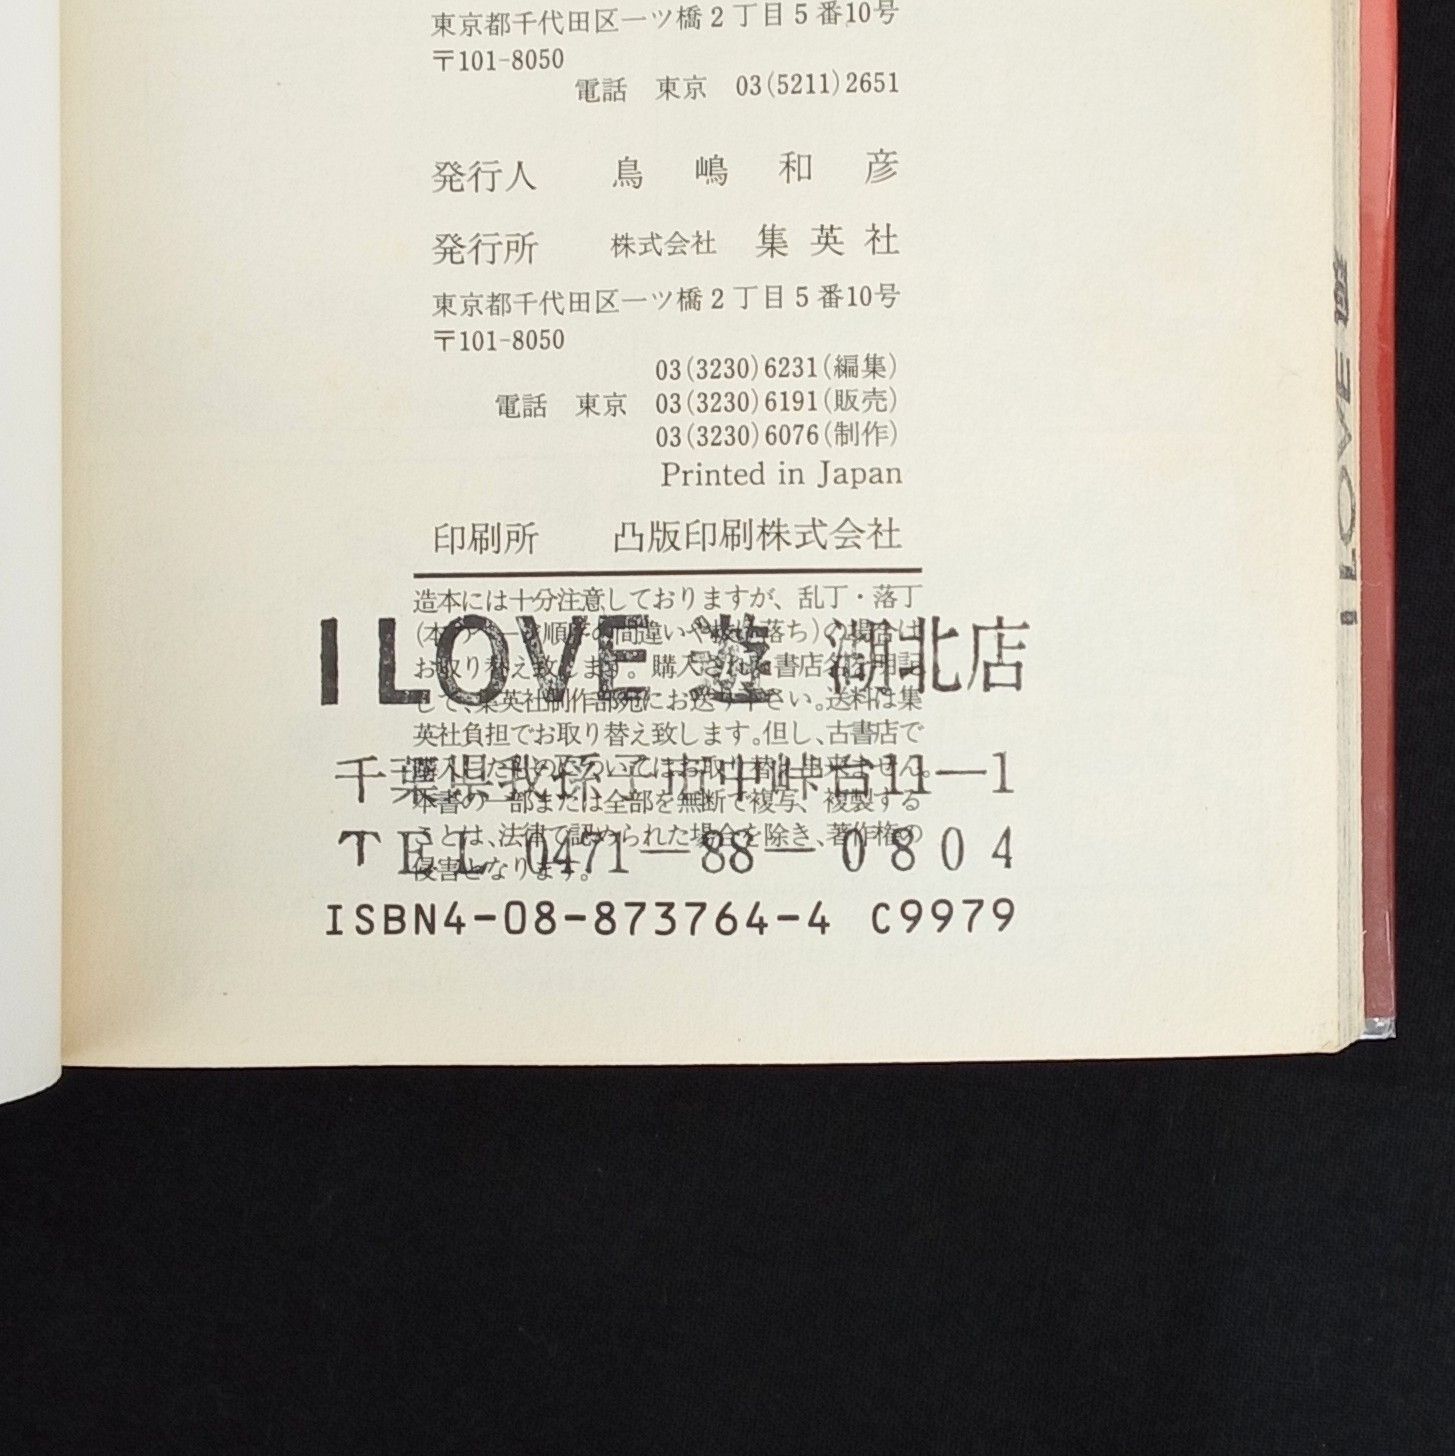 東京都千代田区一ツ橋2丁目5番10号
〒101-8050
電話 東京 03(5211)2651
発行人 鳥嶋和彦
発行所 株式会社 集英社
東京都千代田区一ツ橋2丁目5番10号
〒101-8050
03(3230)6231(編集)
電話 東京 03(3230)6191(販売)
03(3230)6076(制作)
Printed in Japan
印刷所 凸版印刷株式会社
造本には十分注意しておりますが、乱丁・落丁
(本のページ順序の間違いや抜け落ち)の場合は
I LOVE 遊 湖北店
お取り替え致します。購入された書店名を明記
して、集英社制作部宛にお送り下さい。送料は集
英社負担でお取り替え致します。但し、古書店で
購入したものについてはお取り替え出来ません。
千葉県我孫子市中峠台11—1
本書の一部または全部を無断で複写、複製する
ことは、法律で認められた場合を除き、著作権の
TEL 0471—88—0804
侵害となります。
ISBN4-08-873764-4 C9979
I LOVE 遊